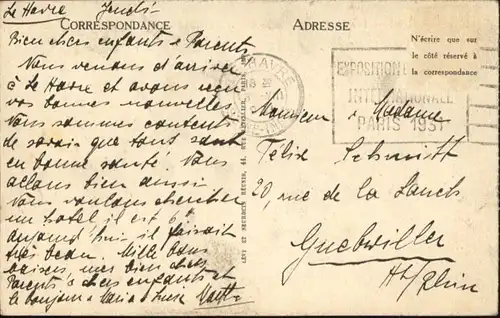 Le Havre Jeudi
CORRESPONDANCE
Bien chers enfants & Parents
Nous venons d'arriver
à Le Havre et avons reçu
vos bonnes nouvelles.
Nous sommes contents
de savoir que tout sont
en bonne santé. Nous
allons bien aussi
Nous voulons chercher
un hotel il est 6h
aujourd'hui il faisait
très beau. Mille bons
baisers, mes bien chers
Parents & chers enfants et
le bonjour à Maria &
LÉVY ET NEURDEIN RÉUNIS, 44, RUE LETELLIER, PARIS
ADRESSE
N'écrire que sur
le côté réservé à
la correspondance
HAVRE
EXPOSITION
INTERNATIONALE
PARIS 1931
Monsieur & Madame
Félix Schmitt
20, rue de la Lauch
Guebwiller
Ht/Rhin